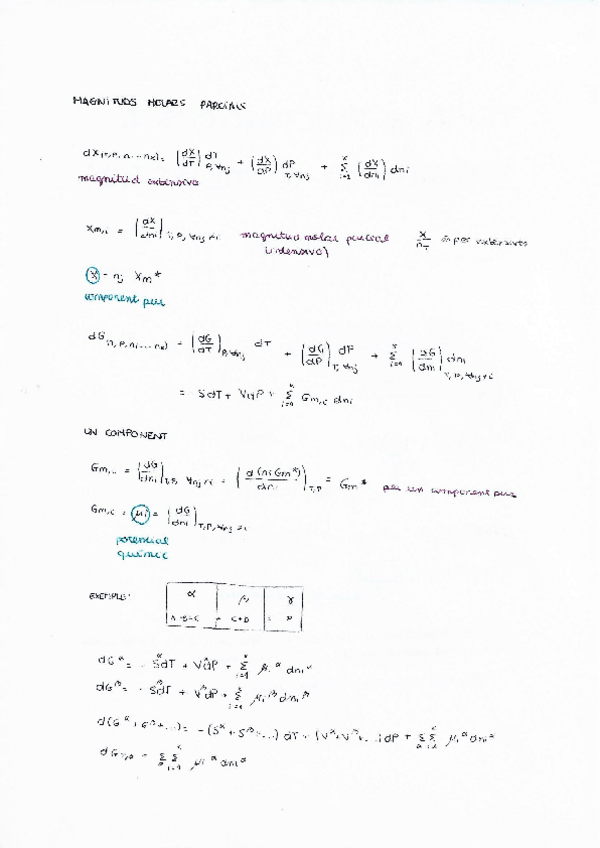 MAGNITUDS MOLARS PARCIALS
dX(T,P,n...nk) = (dX/dT)P,∀nj dT + (dX/dP)T,∀nj dP + Σ(i=1→k) (dX/dni) dni
magnitud extensiva
Xm,i = (dX/dni)T,P,∀nj≠i magnitud molar parcial X/nT
(intensiva)
X = nj Xm*
component pur
dG(T,P,ni...nk) = (dG/dT)P,∀nj dT + (dG/dP)T,∀nj dP + Σ(i=1→k) (dG/dni)T,P,∀nj≠i dni
= SdT + VdP + Σ(i=1→k) Gm,i dni
UN COMPONENT
Gm,i = (dG/dni)T,P,∀nj≠i = (d(ni Gm*)/dni)T,P = Gm* per un component pur
Gm,i = μi = (dG/dni)T,P,∀nj≠i
potencial
químic
EXEMPLE: α β γ
A+B+C C+D
dGα = -SαdT + VαdP + Σ(i=1→k) μiα dniα
dGβ = -SβdT + VβdP + Σ(i=1→k) μiβ dniβ
d(Gα + Gβ + ...) = -(Sα + Sβ + ...) dT + (Vα + Vβ + ...) dP + Σα Σ(i=1→k) μiα dniα
dGT,P = Σα Σ(i=1→k) μiα dniα